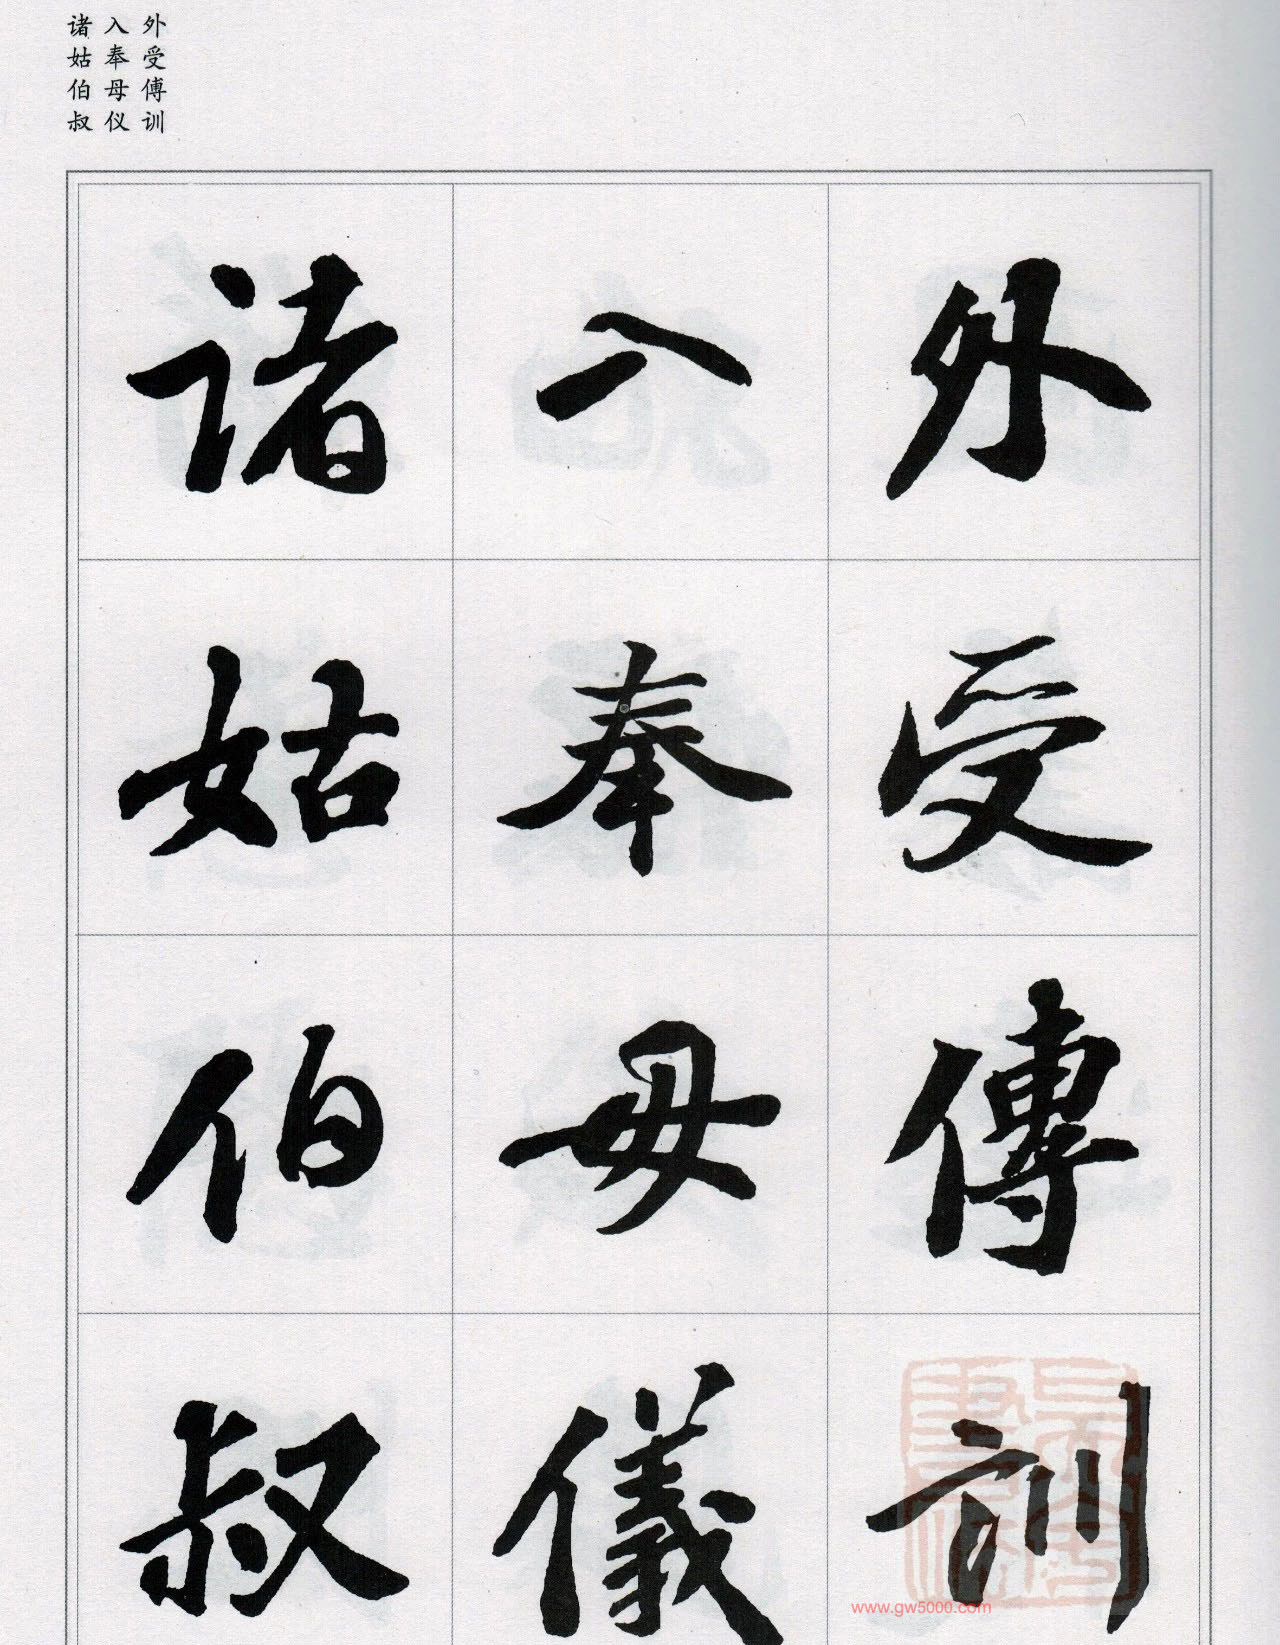 外受傅训
入奉母仪
诸姑伯叔
外受傅訓
入奉母儀
诸姑伯叔
www.gw5000.com